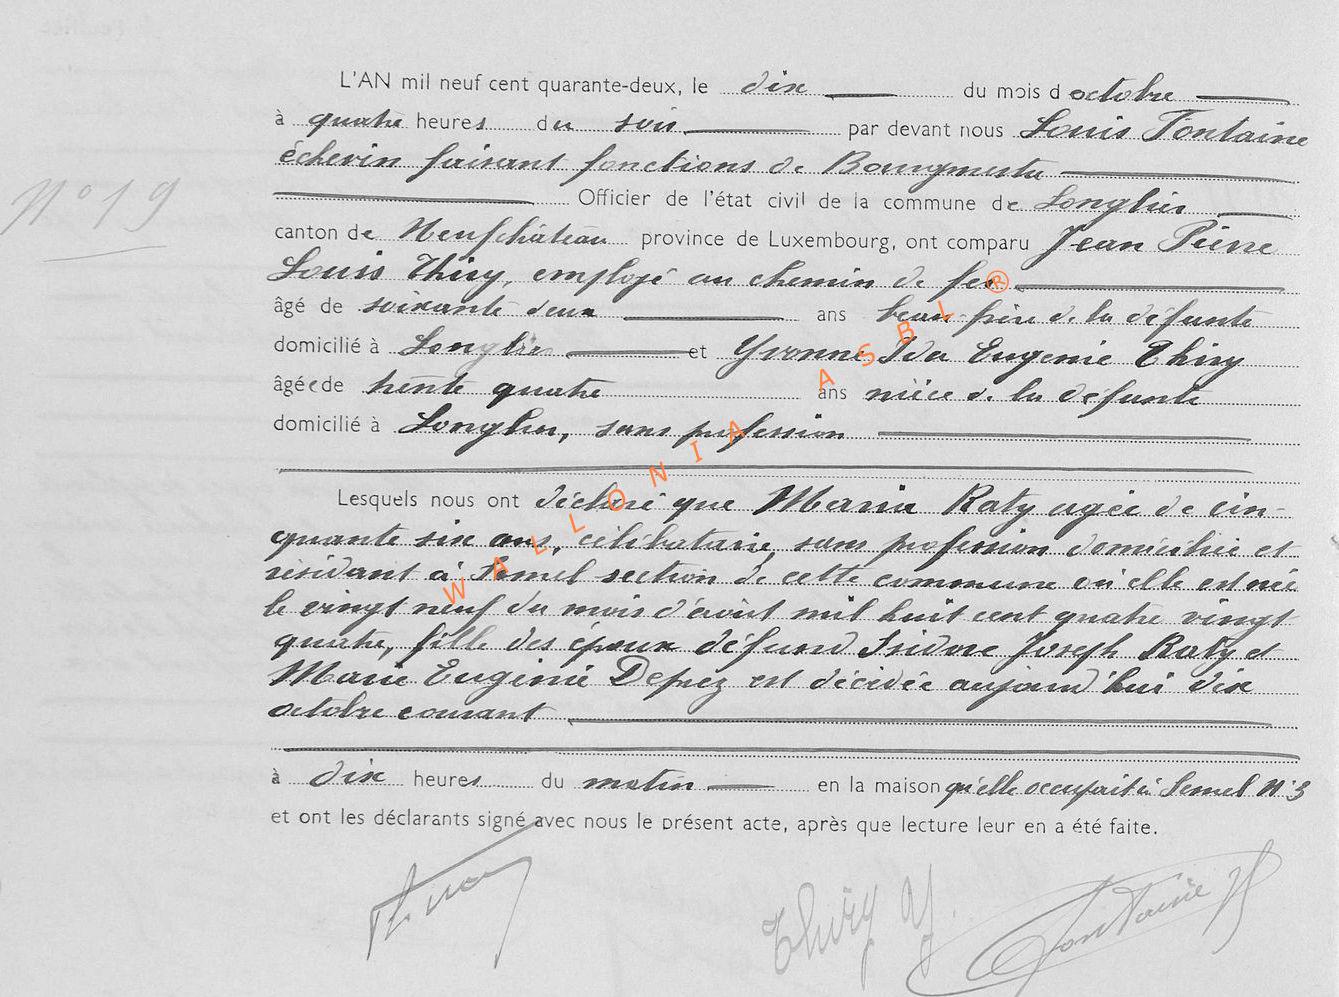 L'AN mil neuf cent quarante-deux, le dix du mois d octobre
à quatre heures du soir par devant nous Louis Fontaine
échevin faisant fonctions de Bourgmestre
N° 19
Officier de l'état civil de la commune de Longlier
canton de Neufchâteau province de Luxembourg, ont comparu Jean Pierre
Louis Thiry, employé au chemin de fer
âgé de soixante deux ans beau-frère de la défunte
domicilié à Longlier et Yvonne Ida Eugenie Thiry
âgée de trente quatre ans nièce de la défunte
domicilié à Longlier, sans profession
Lesquels nous ont déclaré que Maria Raty agée de cin-
quante six ans, célibataire, sans profession domiciliée et
résidant à Semel section de cette commune où elle est née
le vingt neuf du mois d'août mil huit cent quatre vingt
quatre, fille des époux défund Isidore Joseph Raty et
Marie Eugénie Defrez est décédée aujourd'hui dix
octobre courant
à dix heures du matin en la maison qu'elle occupait à Semel N°3
et ont les déclarants signé avec nous le présent acte, après que lecture leur en a été faite.
Thiry Y. Fontaine
WALLONIA ASBL ®